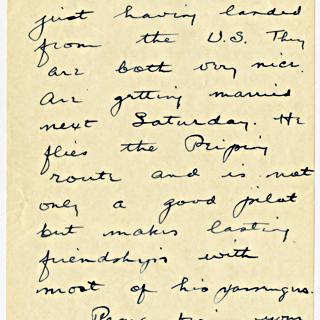 just having landed
from the U.S. They
are both very nice.
Are getting married
next Saturday. He
flies the Peiping
route and is not
only a good pilot
but makes lasting
friendships with
most of his passengers.